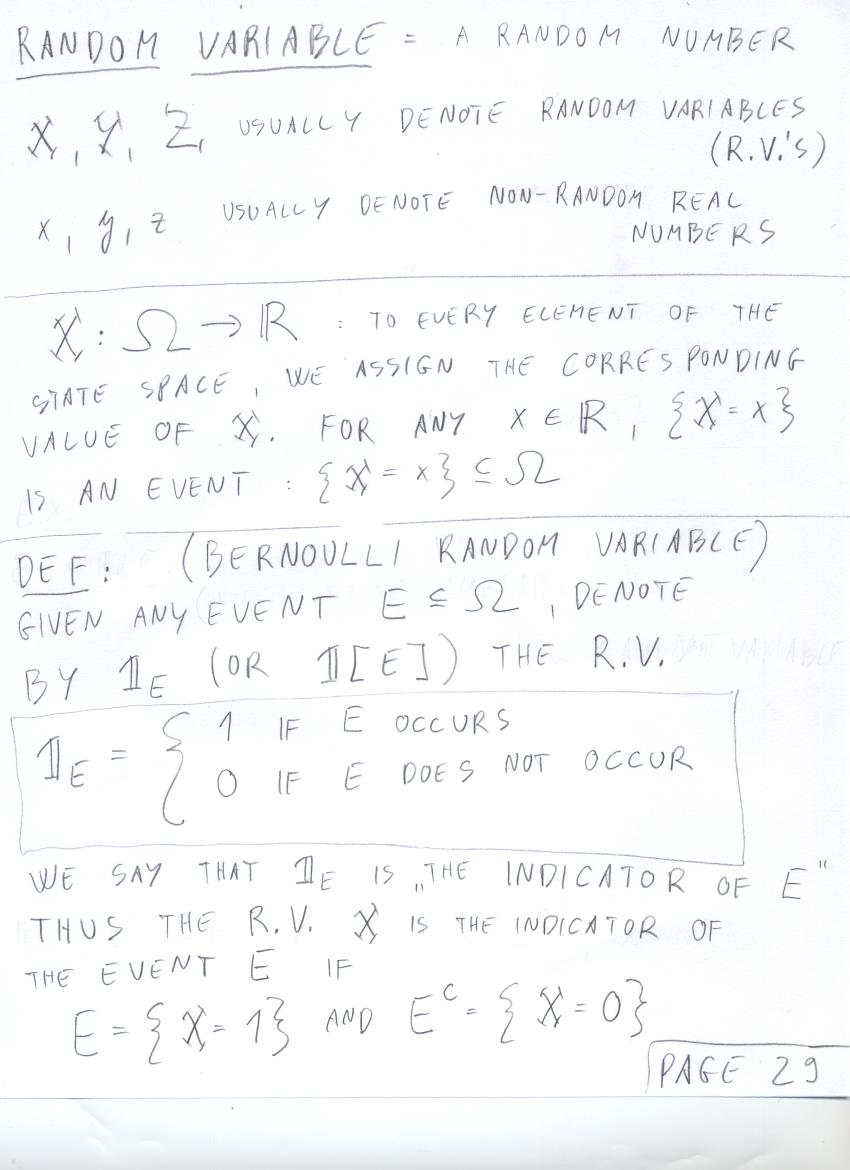 RANDOM VARIABLE = A RANDOM NUMBER
X, Y, Z, USUALLY DENOTE RANDOM VARIABLES
(R.V.'S)
x, y, z USUALLY DENOTE NON-RANDOM REAL
NUMBERS
X: Ω → ℝ : TO EVERY ELEMENT OF THE
STATE SPACE, WE ASSIGN THE CORRESPONDING
VALUE OF X. FOR ANY x ∈ ℝ, {X = x}
IS AN EVENT : {X = x} ⊆ Ω
DEF: (BERNOULLI RANDOM VARIABLE)
GIVEN ANY EVENT E ⊆ Ω, DENOTE
BY 𝟙_E (OR 𝟙[E]) THE R.V.
𝟙_E = { 1 IF E OCCURS
0 IF E DOES NOT OCCUR
WE SAY THAT 𝟙_E IS „THE INDICATOR OF E"
THUS THE R.V. X IS THE INDICATOR OF
THE EVENT E IF
E = {X = 1} AND E^C = {X = 0}
PAGE 29